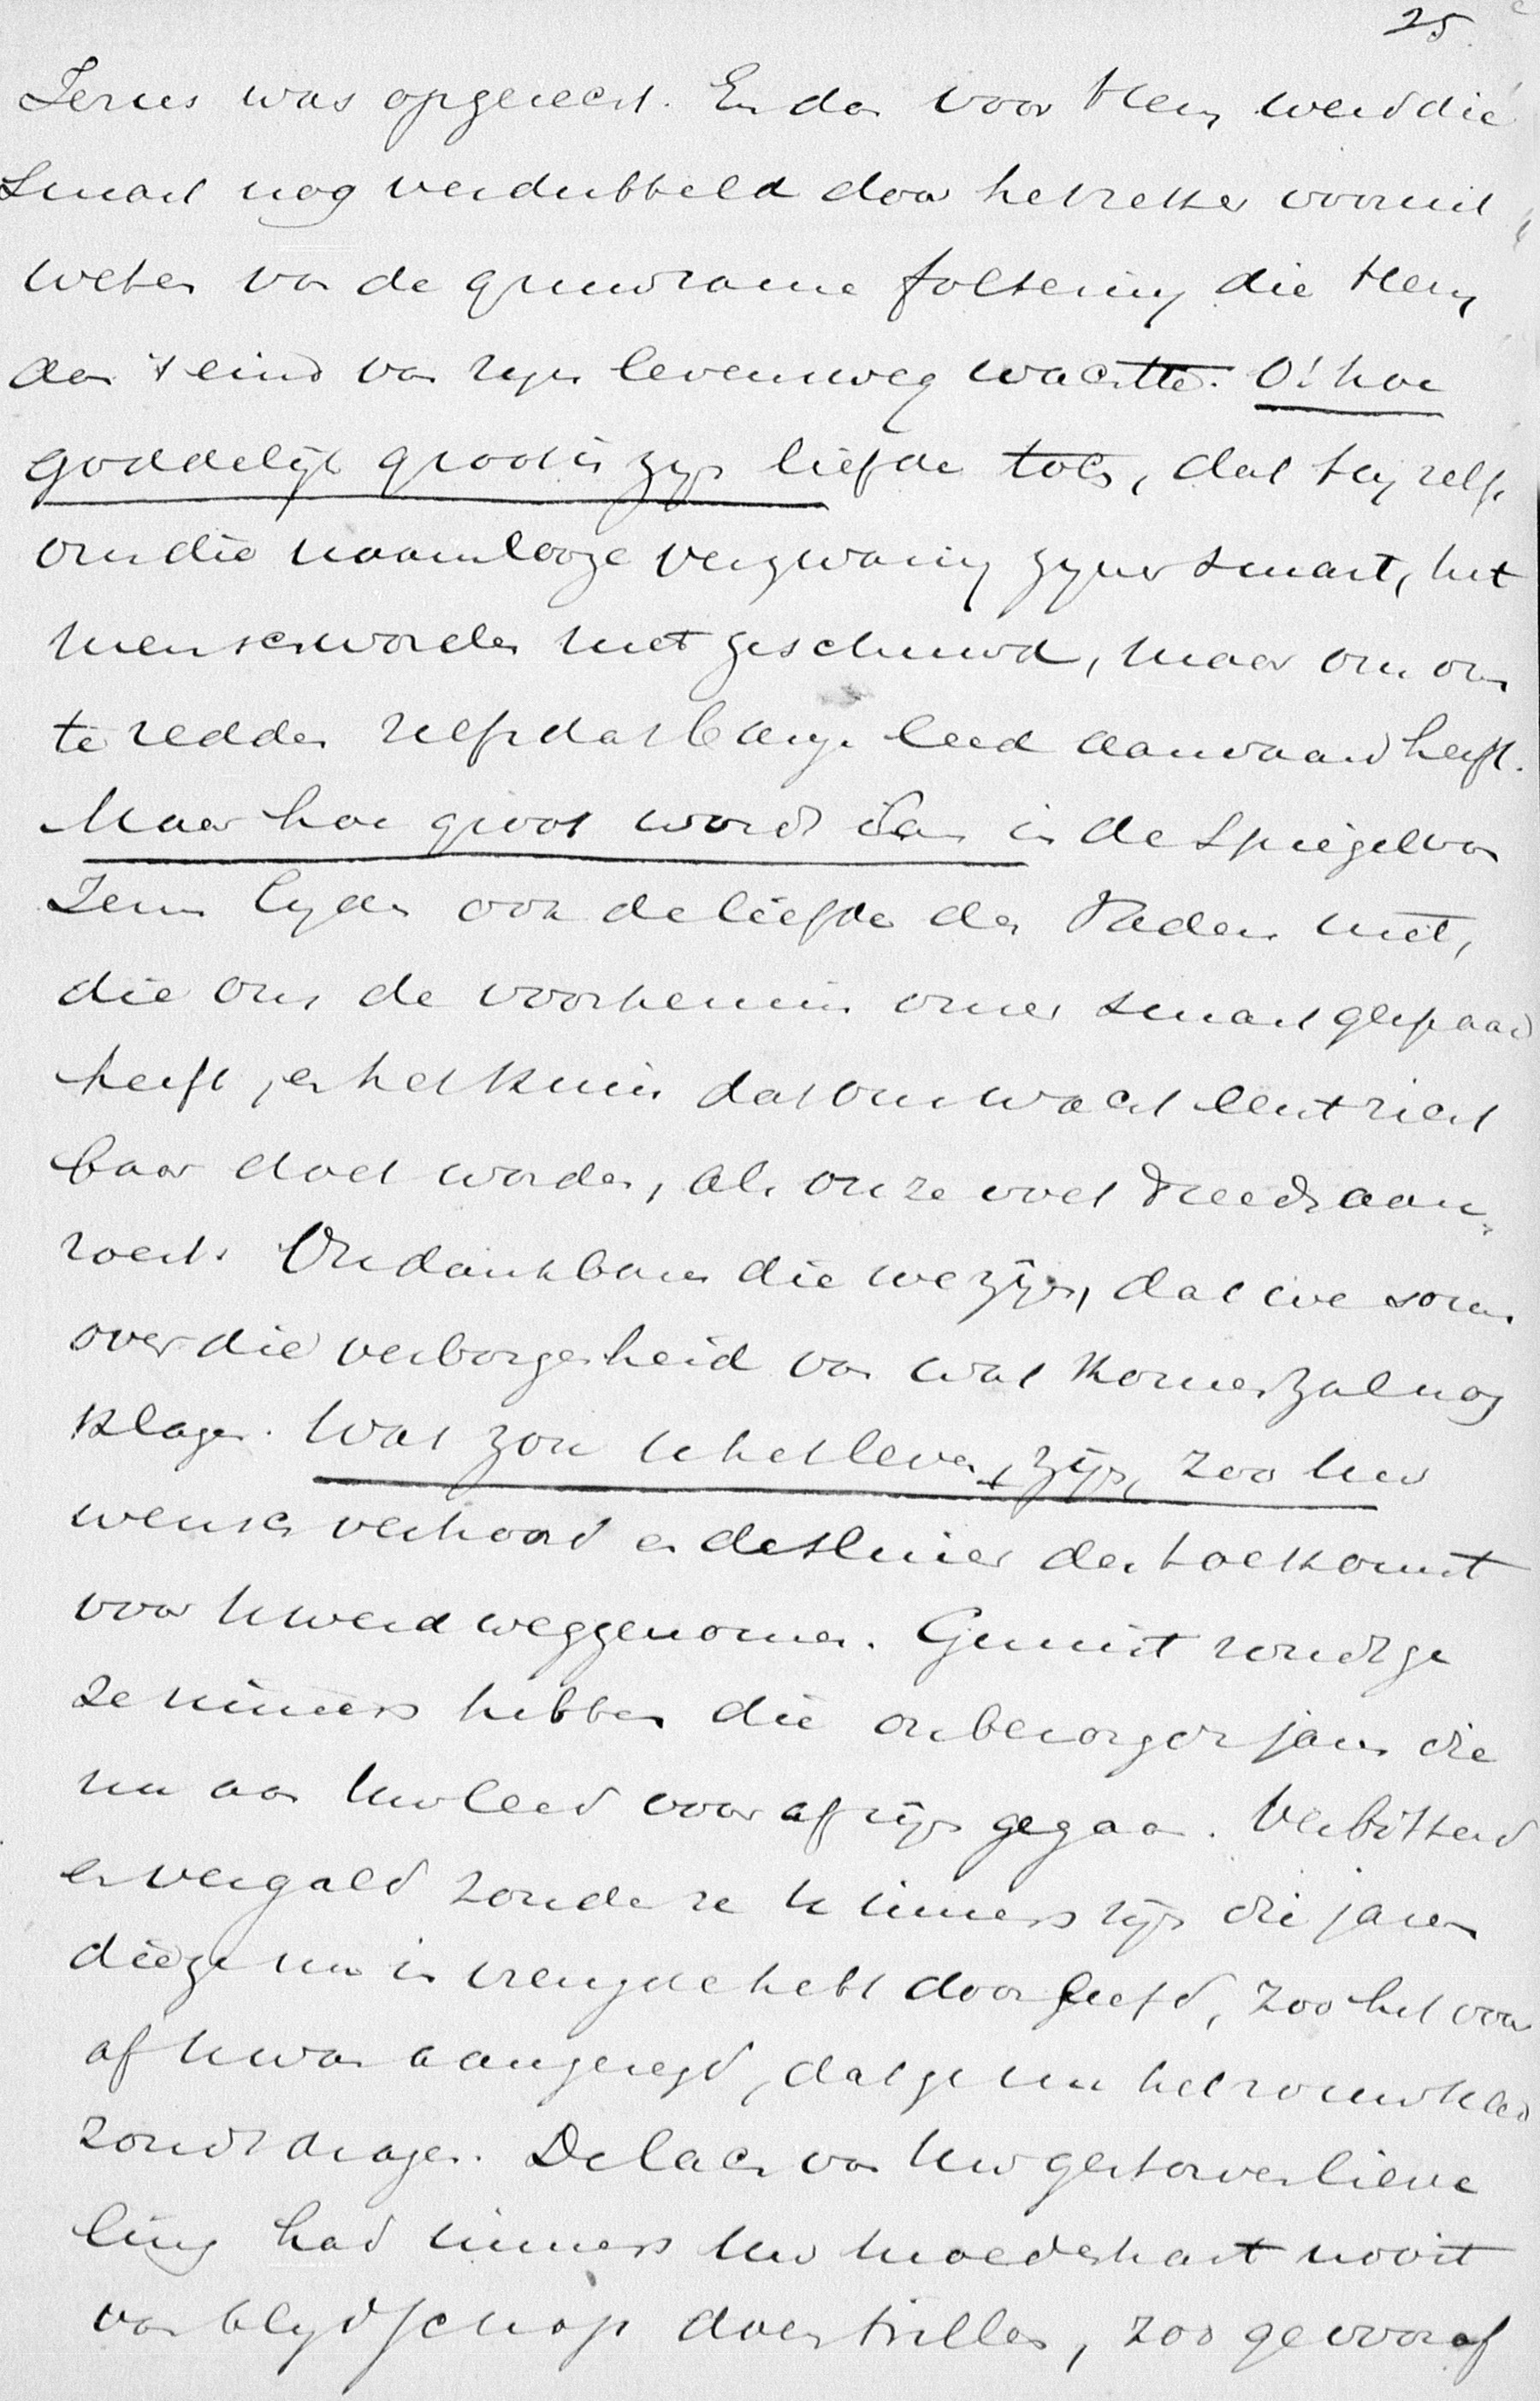 25.
Jezus was opgericht. En dan voor Hem werd die
smart nog verdubbeld door het zeker vooruit
weten van de gruwzame foltering die Hem
aan 't eind van zijn levensweg wachtte. O! hoe
goddelijk groot is zijn liefde toch, dat Hij zelfs
om die naamlooze verzwaring zijner smart, het
menschworden niet geschuwd, maar om ons
te redden zelfs dat bange leed aanvaard heeft.
Maar hoe groot wordt dan in de spiegel van
Jezus lijden ook de liefde des Vaders niet,
die ons de voorkennis onzer smart gespaard
heeft, en het kruis dat ons wacht eerst zicht
baar doet worden, als onze voet reeds aan
roert. Ondankbaren die we zijn, dat we soms
over die verborgenheid van wat komen zal nog
klagen. Wat zou U het leven zijn, zoo Uw
wensch verhoord en de sluier der toekomst
voor U werd weggenomen. Gemist zoudt ge
ze immers hebben die onbezorgde jaren die
nu aan Uw leed vooraf zijn gegaan. Verbitterd
en vergald zouden ze U immers zijn die jaren
die ge nu in vreugde hebt doorleefd, zoo het voor
af U was aangezegd, dat ge nu het rouwkleed
zoudt dragen. De lach van Uw gestorven lieve
ling had immers Uw moederhart nooit
van blijdschap doen trillen, zoo ge vooraf